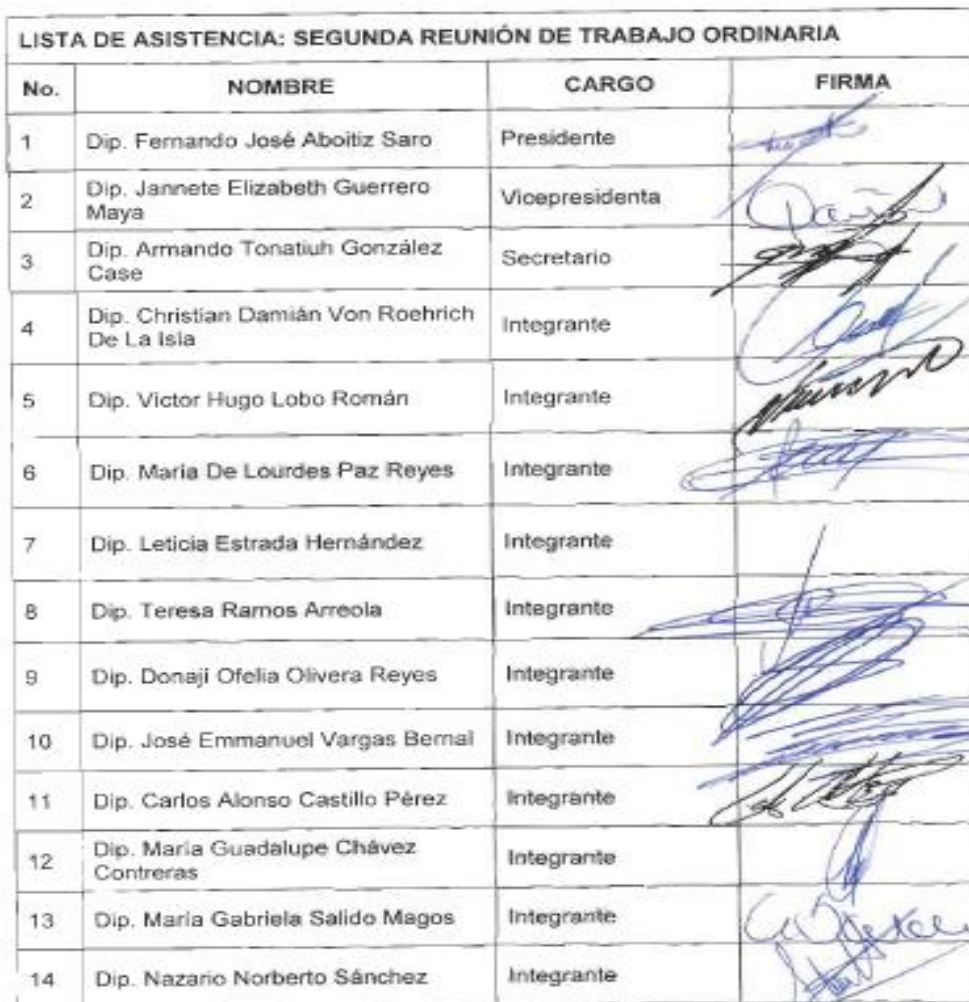 LISTA DE ASISTENCIA: SEGUNDA REUNIÓN DE TRABAJO ORDINARIA
No. NOMBRE CARGO FIRMA
1 Dip. Fernando José Aboitiz Saro Presidente
2 Dip. Jannete Elizabeth Guerrero Maya Vicepresidenta
3 Dip. Armando Tonatiuh González Case Secretario
4 Dip. Christian Damián Von Roehrich De La Isla Integrante
5 Dip. Victor Hugo Lobo Román Integrante
6 Dip. María De Lourdes Paz Reyes Integrante
7 Dip. Leticia Estrada Hernández Integrante
8 Dip. Teresa Ramos Arreola Integrante
9 Dip. Donají Ofelia Olivera Reyes Integrante
10 Dip. José Emmanuel Vargas Bernal Integrante
11 Dip. Carlos Alonso Castillo Pérez Integrante
12 Dip. María Guadalupe Chávez Contreras Integrante
13 Dip. María Gabriela Salido Magos Integrante
14 Dip. Nazario Norberto Sánchez Integrante